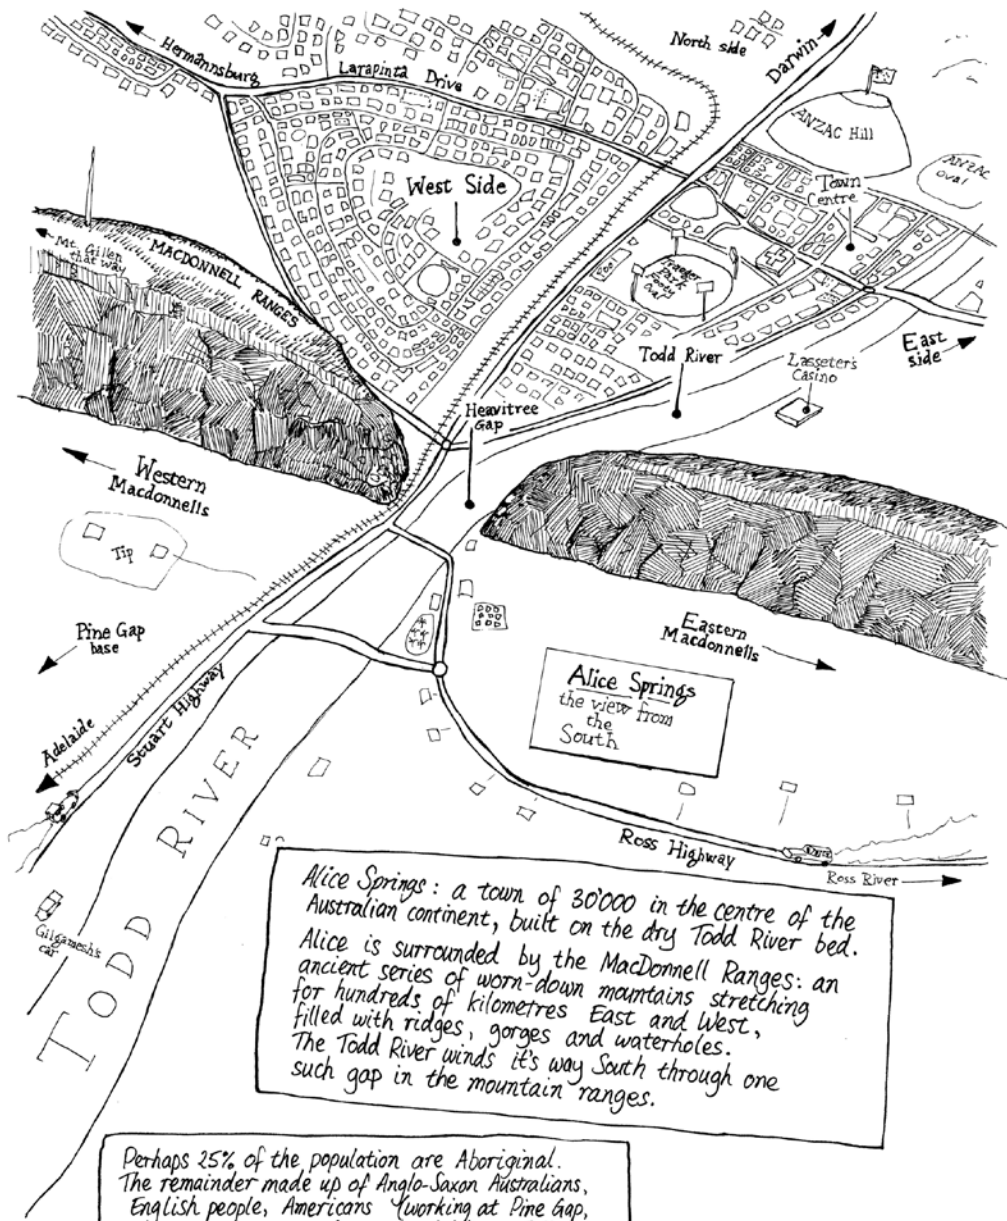 North side
Darwin
Hermannsburg
Larapinta Drive
ANZAC Hill
ANZAC
oval
Town
Centre
West Side
Mt. Gillen
that way
MACDONNELL RANGES
Traeger
Park
Footy
Oval
Todd River
East
side
Lasseter's
Casino
Heavitree
Gap
Western
Macdonnells
Tip
Pine Gap
base
Eastern
Macdonnells
Alice Springs
the view from
the
South
Adelaide
Stuart Highway
TODD RIVER
Ross Highway
Ross River
Gilgamesh's
car
Alice Springs: a town of 30'000 in the centre of the
Australian continent, built on the dry Todd River bed.
Alice is surrounded by the MacDonnell Ranges: an
ancient series of worn-down mountains stretching
for hundreds of kilometres East and West,
filled with ridges, gorges and waterholes.
The Todd River winds it's way South through one
such gap in the mountain ranges.
Perhaps 25% of the population are Aboriginal.
The remainder made up of Anglo-Saxon Australians,
English people, Americans (working at Pine Gap,